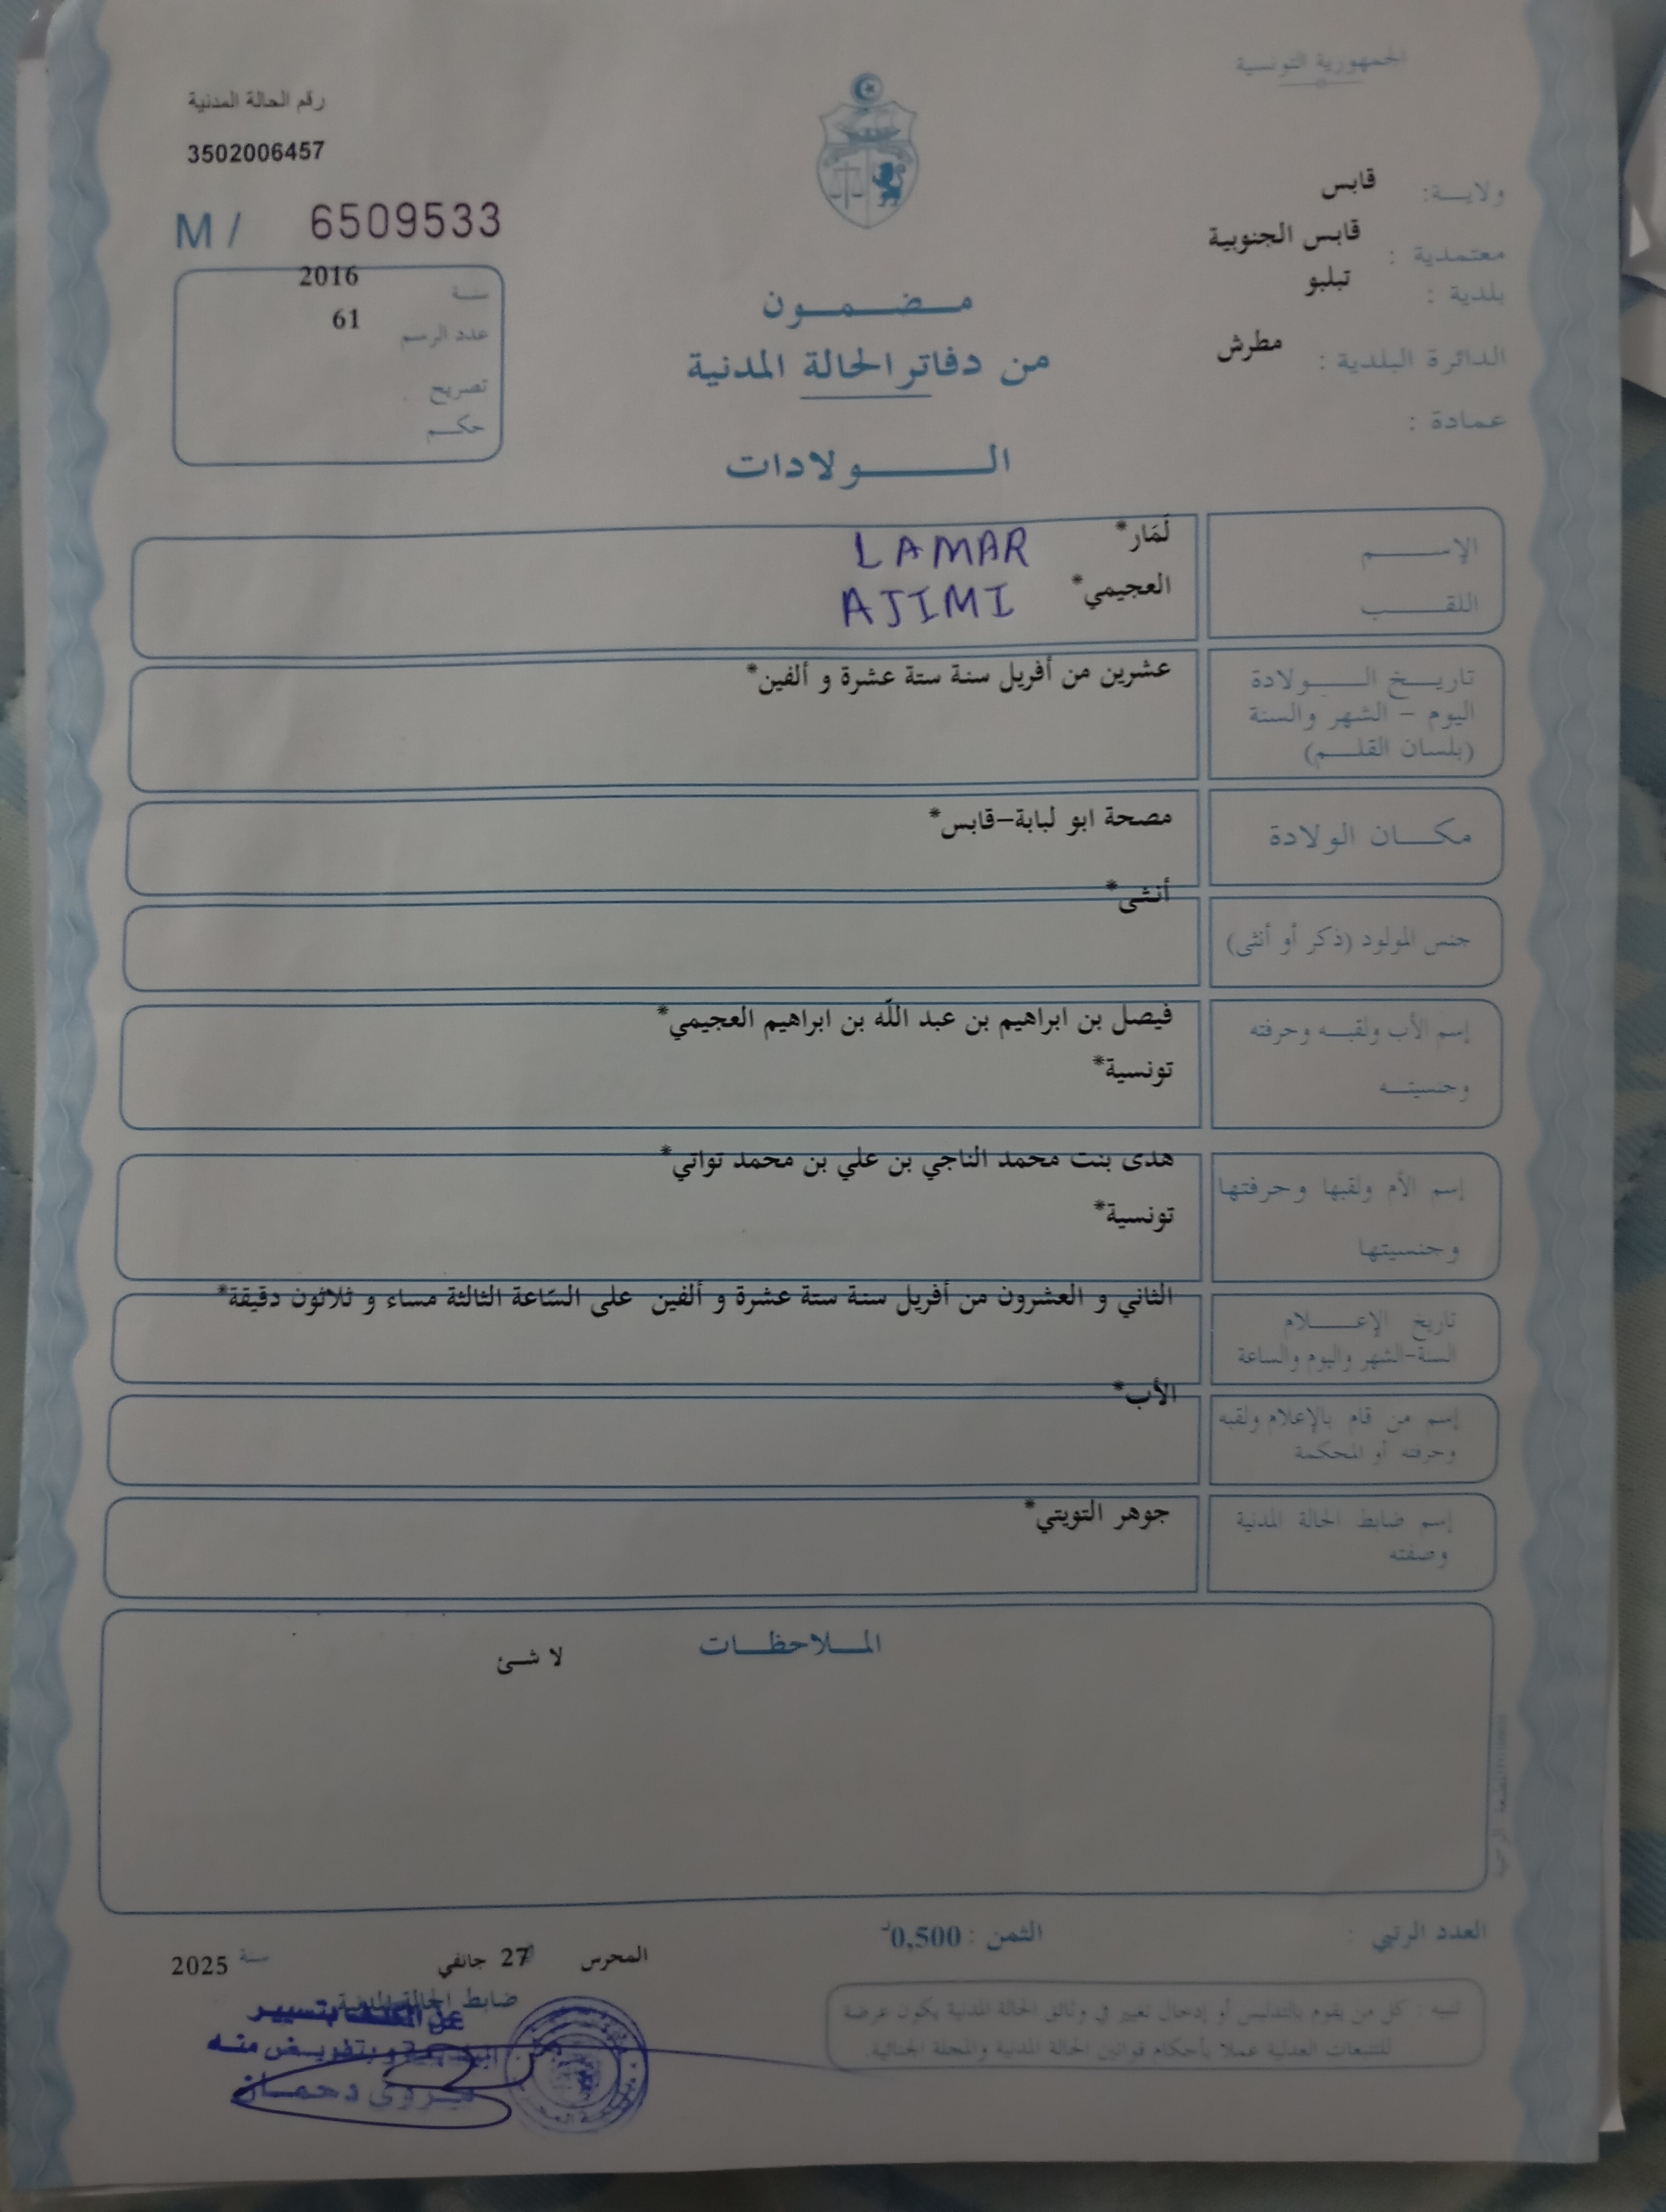 الجمهورية التونسية
رقم الحالة المدنية
3502006457
M / 6509533
ولايــة: قابس
معتمدية : قابس الجنوبية
بلدية : تبلبو
الدائرة البلدية : مطرش
عمادة :
سنة 2016
عدد الرسم 61
تصريح
حكم
مضمون
من دفاتر الحالة المدنية
الولادات
الإسم لَمَار* LAMAR
اللقب العجيمي* AJIMI
تاريخ الولادة
اليوم - الشهر والسنة
(بلسان القلم)
عشرين من أفريل سنة ستة عشرة و ألفين*
مكان الولادة
مصحة ابو لبابة-قابس*
جنس المولود (ذكر أو أنثى)
أنثى*
إسم الأب ولقبه وحرفته
وجنسيته
فيصل بن ابراهيم بن عبد اللّه بن ابراهيم العجيمي*
تونسية*
إسم الأم ولقبها وحرفتها
وجنسيتها
هدى بنت محمد الناجي بن علي بن محمد تواتي*
تونسية*
تاريخ الإعلام
السنة-الشهر واليوم والساعة
الثاني و العشرون من أفريل سنة ستة عشرة و ألفين على السّاعة الثالثة مساء و ثلاثون دقيقة*
إسم من قام بالإعلام ولقبه
وحرفته أو المحكمة
الأب*
إسم ضابط الحالة المدنية
وصفته
جوهر التويتي*
الملاحظات
لا شئ
العدد الرتبي :
الثمن : 0,500د
المحرس 27 جانفي سنة 2025
ضابط الحالة المدنية
عن المكلف بتسيير
البلدية وبتفويض منه
دحمان
تنبيه : كل من يقوم بالتدليس أو إدخال تغيير في وثائق الحالة المدنية يكون عرضة
للتتبعات العدلية عملا بأحكام قوانين الحالة المدنية والمجلة الجنائية.